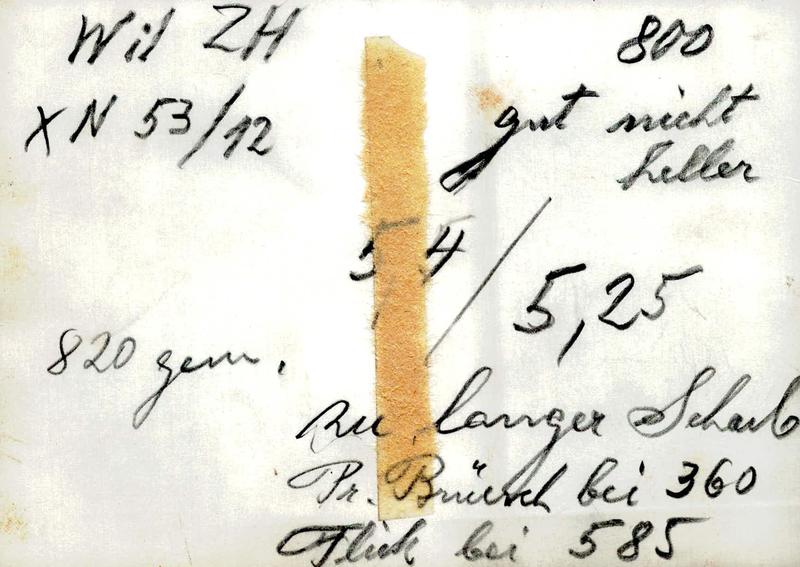 Wil ZH
800
X N 53/12
gut nicht
heller
5,4 / 5,25
820 gem.
zu langer Schaub
Pr. Brüesch bei 360
Flick bei 585